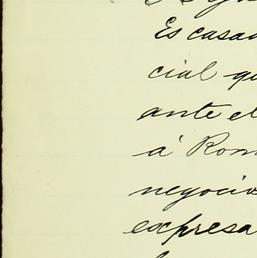 Es casad
cial qu
ante el
á Rom
negocio
expresa